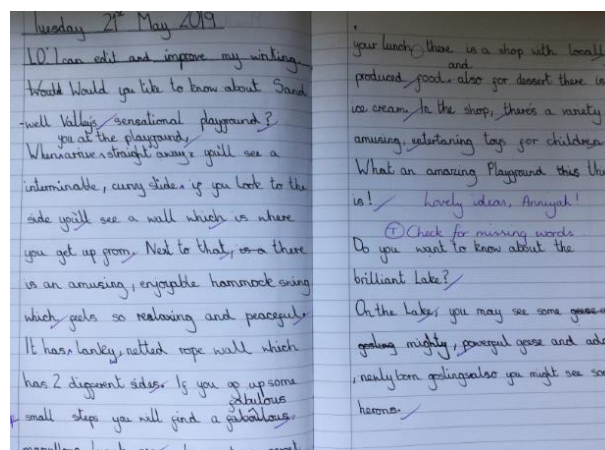 Tuesday 21st May 2019
LO: I can edit and improve my writing.
Would Would you like to know about Sand
-well Valley's sensational playground?
you at the playground,
When arrive straight away you'll see a
interminable, curvy slide. if you look to the
side you'll see a wall which is where
you get up from. Next to that, is a there
is an amusing, enjoyable hammock swing
which feels so relaxing and peaceful.
It has lanky, netted rope wall which
has 2 different sides. If you go up some
fabulous
small steps you will find a
your lunch there is a shop with
and
produced food. also for dessert there is
ice cream. In the shop, there's a variety
amusing, entertaning toys for children
What an amazing Playground this
is! Lovely ideas, Anniyah!
T Check for missing words
Do you want to know about the
brilliant Lake?
On the Lake, you may see some geese
gosling mighty, powerful geese and
, newly born goslings also you might see
herons.